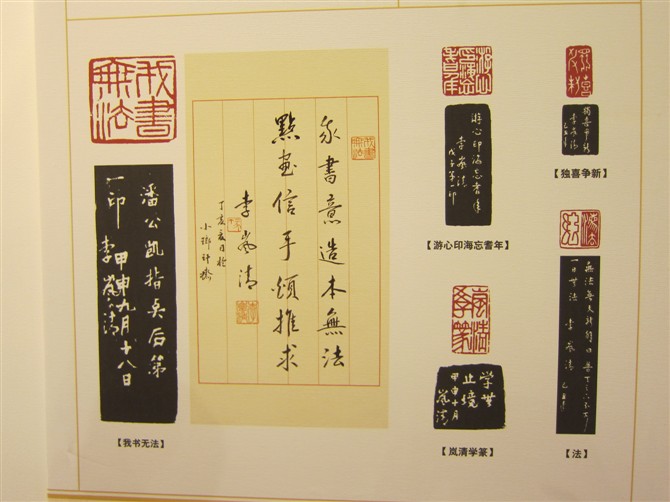 我書無法
潘公凯指奌后第
一印
甲申九月十八日
李嵐清
【我书无法】
我書無法
我書意造本無法
點畫信手煩推求
李嵐清
丁亥夏月於
游心印海忘耆年
游心印海忘耆年
李嵐清
戊子第一印
【游心印海忘耆年】
嵐清學篆
学無
止境
甲申十月
嵐清
【岚清学篆】
李嵐清
【独喜争新】
李嵐清
【法】